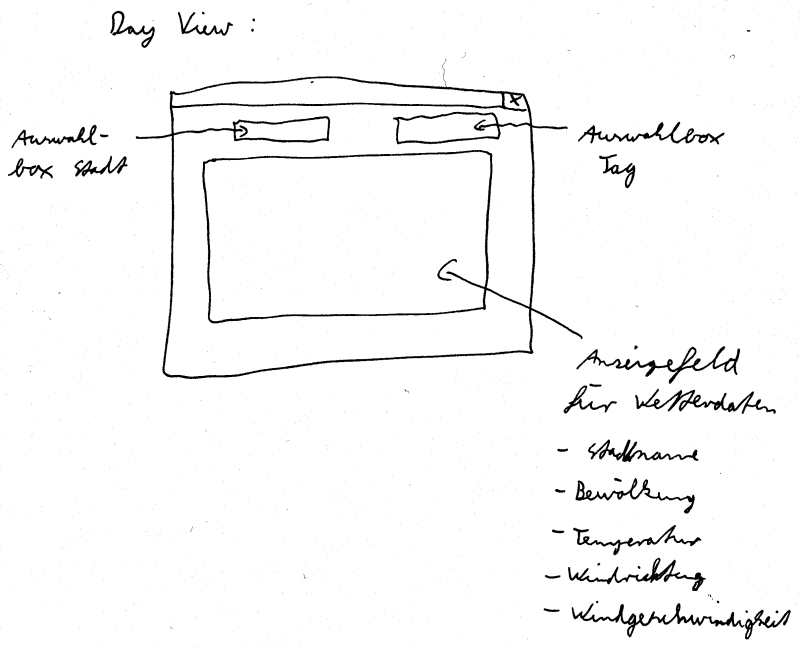 Day View :
x
Auswahl-
box Stadt
Auswahlbox
Tag
Anzeigefeld
für Wetterdaten
- Stadtname
- Bewölkung
- Temperatur
- Windrichtung
- Windgeschwindigkeit